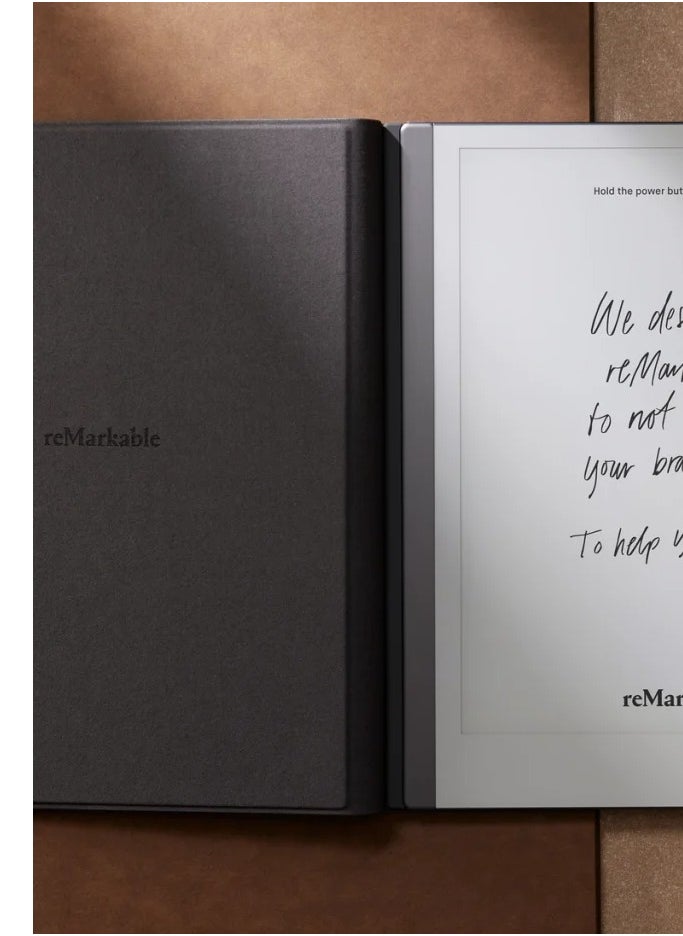 reMarkable
Hold the power but
We des
reMar
to not
your bra
To help y
reMar